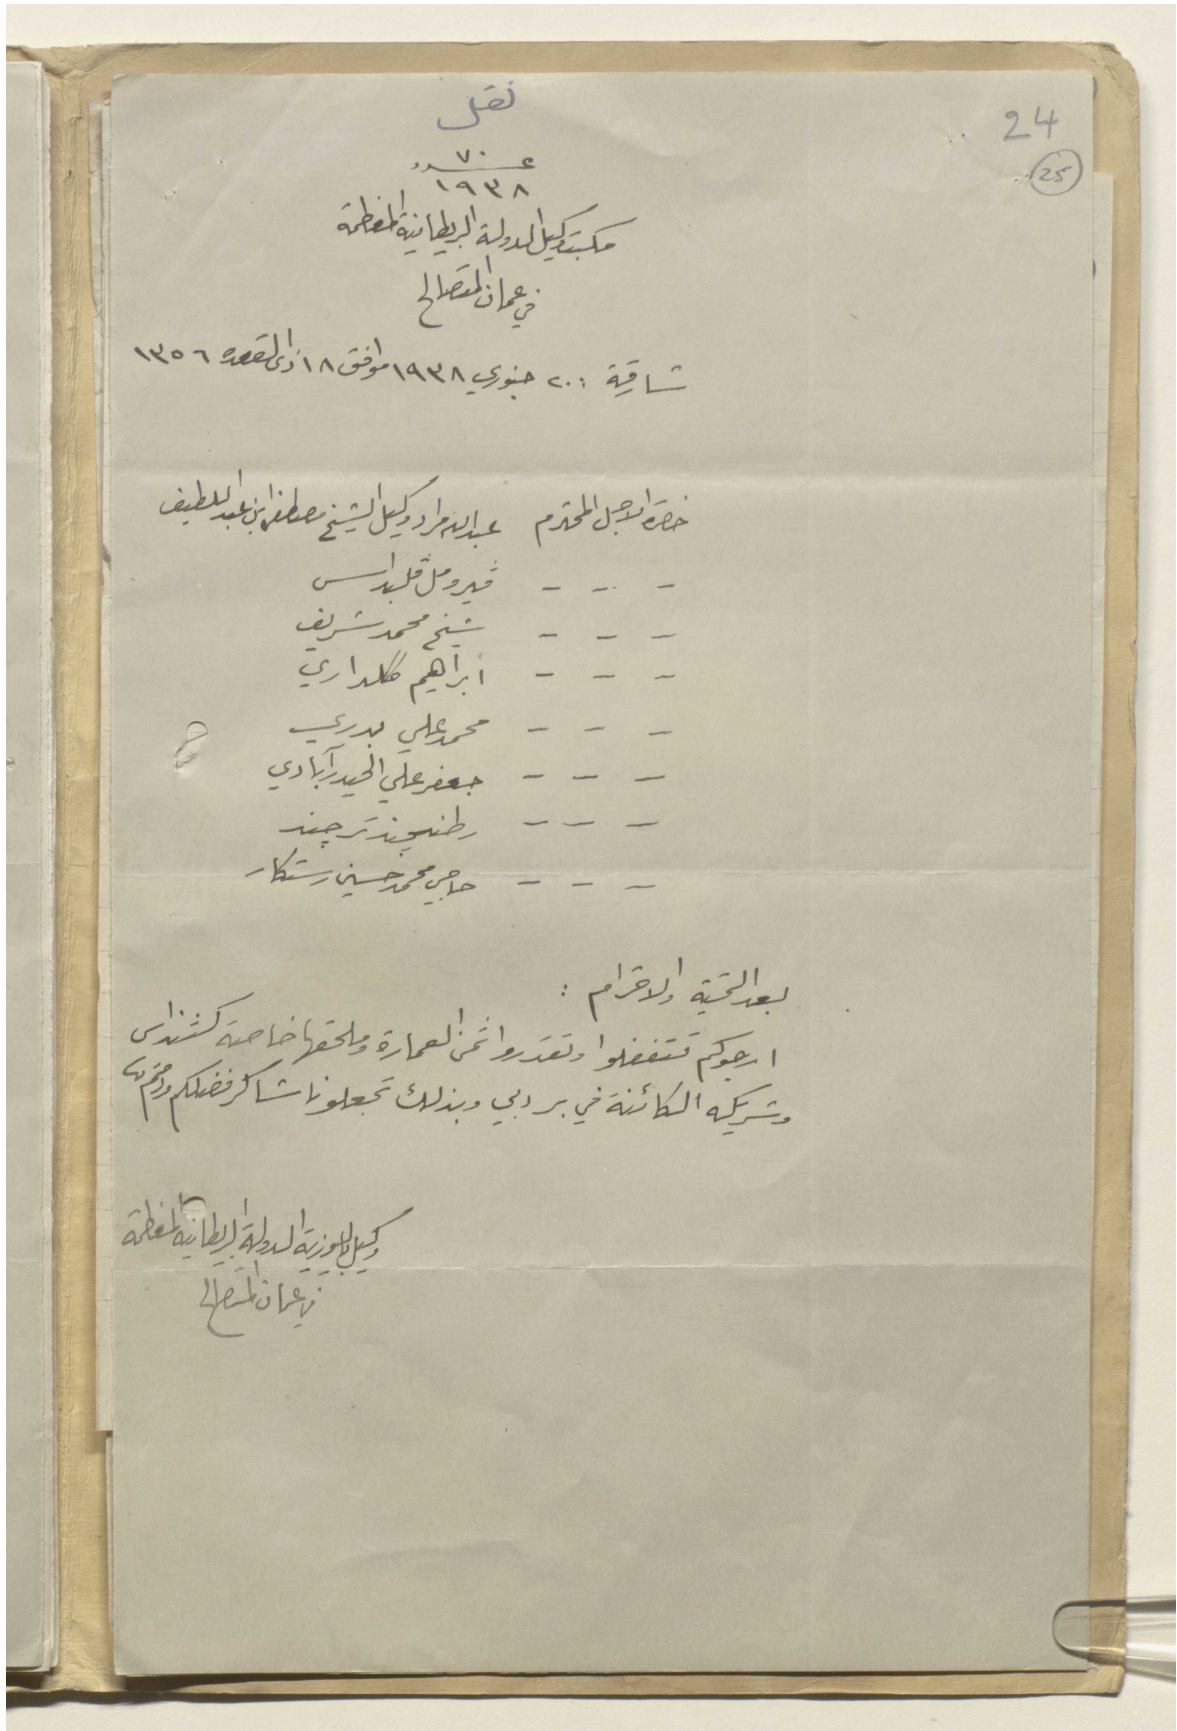 نقل
24
25
عدد ٧٠
١٩٣٨
مكتب وكيل الدولة البريطانية المعظمة
في عمان المتصالح
شارقة : ٢٠ جنوري ١٩٣٨ موافق ١٨ ذي القعده ١٣٥٦
حضرة الاجل المحترم عبدالله مراد وكيل الشيخ مصطفى ابن عبداللطيف
- - - شيخ محمد شريف
- - - ابراهيم كلداري
- - - محمد علي بدري
- - - جعفر علي الحيدرآبادي
- - - حاجي محمد حسين رستكار
بعد التحية والاحترام :
ارجوكم تتفضلوا وتقدروا ثمن العمارة وملحقها خاصة كشنداس
وشريكه الكائنة في بر دبي وبذلك تجعلونا شاكر فضلكم ودمتم
وكيل باليوزية الدولة البريطانية المعظمة
في عمان المتصالح